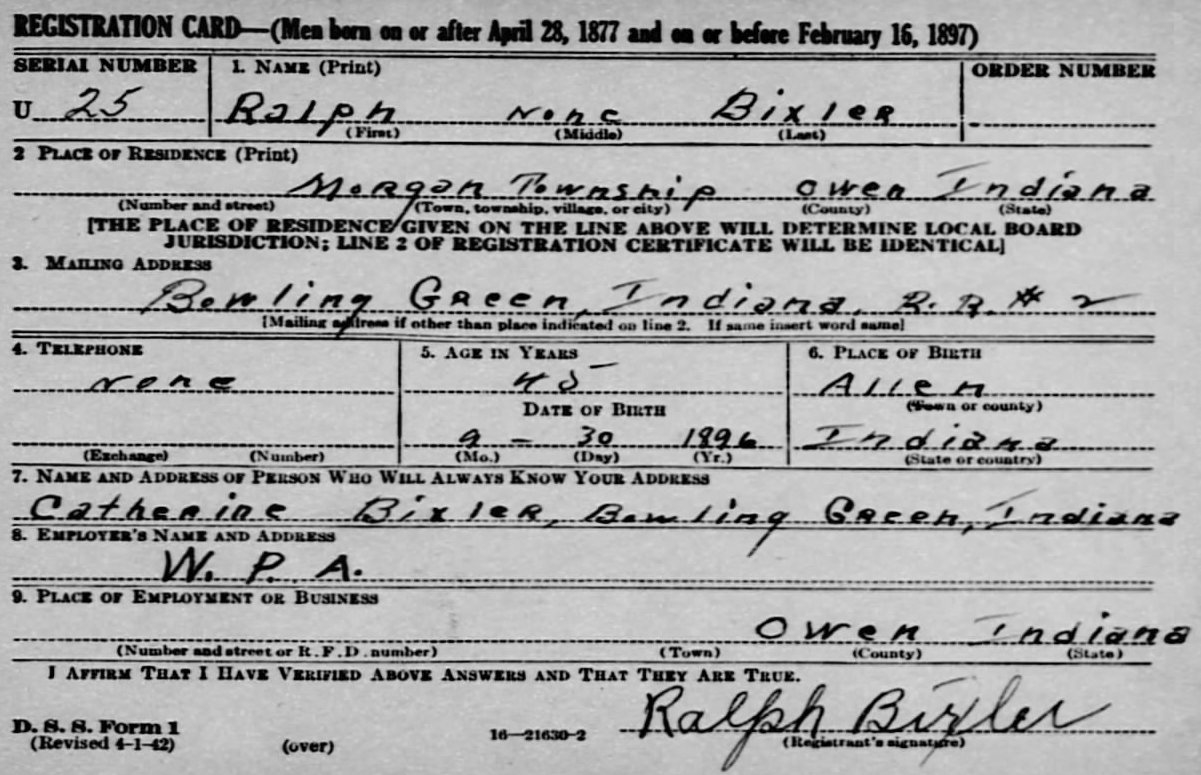 REGISTRATION CARD—(Men born on or after April 28, 1877 and on or before February 16, 1897)
SERIAL NUMBER 1. NAME (Print) ORDER NUMBER
U 25 Ralph None Bixler
(First) (Middle) (Last)
2 PLACE OF RESIDENCE (Print)
Morgan Township Owen Indiana
(Number and street) (Town, township, village, or city) (County) (State)
[THE PLACE OF RESIDENCE GIVEN ON THE LINE ABOVE WILL DETERMINE LOCAL BOARD
JURISDICTION; LINE 2 OF REGISTRATION CERTIFICATE WILL BE IDENTICAL]
3. MAILING ADDRESS
Bowling Green, Indiana, R.R. # 2
[Mailing address if other than place indicated on line 2. If same insert word same]
4. TELEPHONE 5. AGE IN YEARS 6. PLACE OF BIRTH
None 45 Allen
DATE OF BIRTH (Town or county)
9 - 30 1896 Indiana
(Exchange) (Number) (Mo.) (Day) (Yr.) (State or country)
7. NAME AND ADDRESS OF PERSON WHO WILL ALWAYS KNOW YOUR ADDRESS
Catherine Bixler, Bowling Green, Indiana
8. EMPLOYER'S NAME AND ADDRESS
W. P. A.
9. PLACE OF EMPLOYMENT OR BUSINESS
Owen Indiana
(Number and street or R. F. D. number) (Town) (County) (State)
I AFFIRM THAT I HAVE VERIFIED ABOVE ANSWERS AND THAT THEY ARE TRUE.
Ralph Bixler
D. S. S. Form 1
(Revised 4-1-42) (over) 16—21630-2 (Registrant's signature)